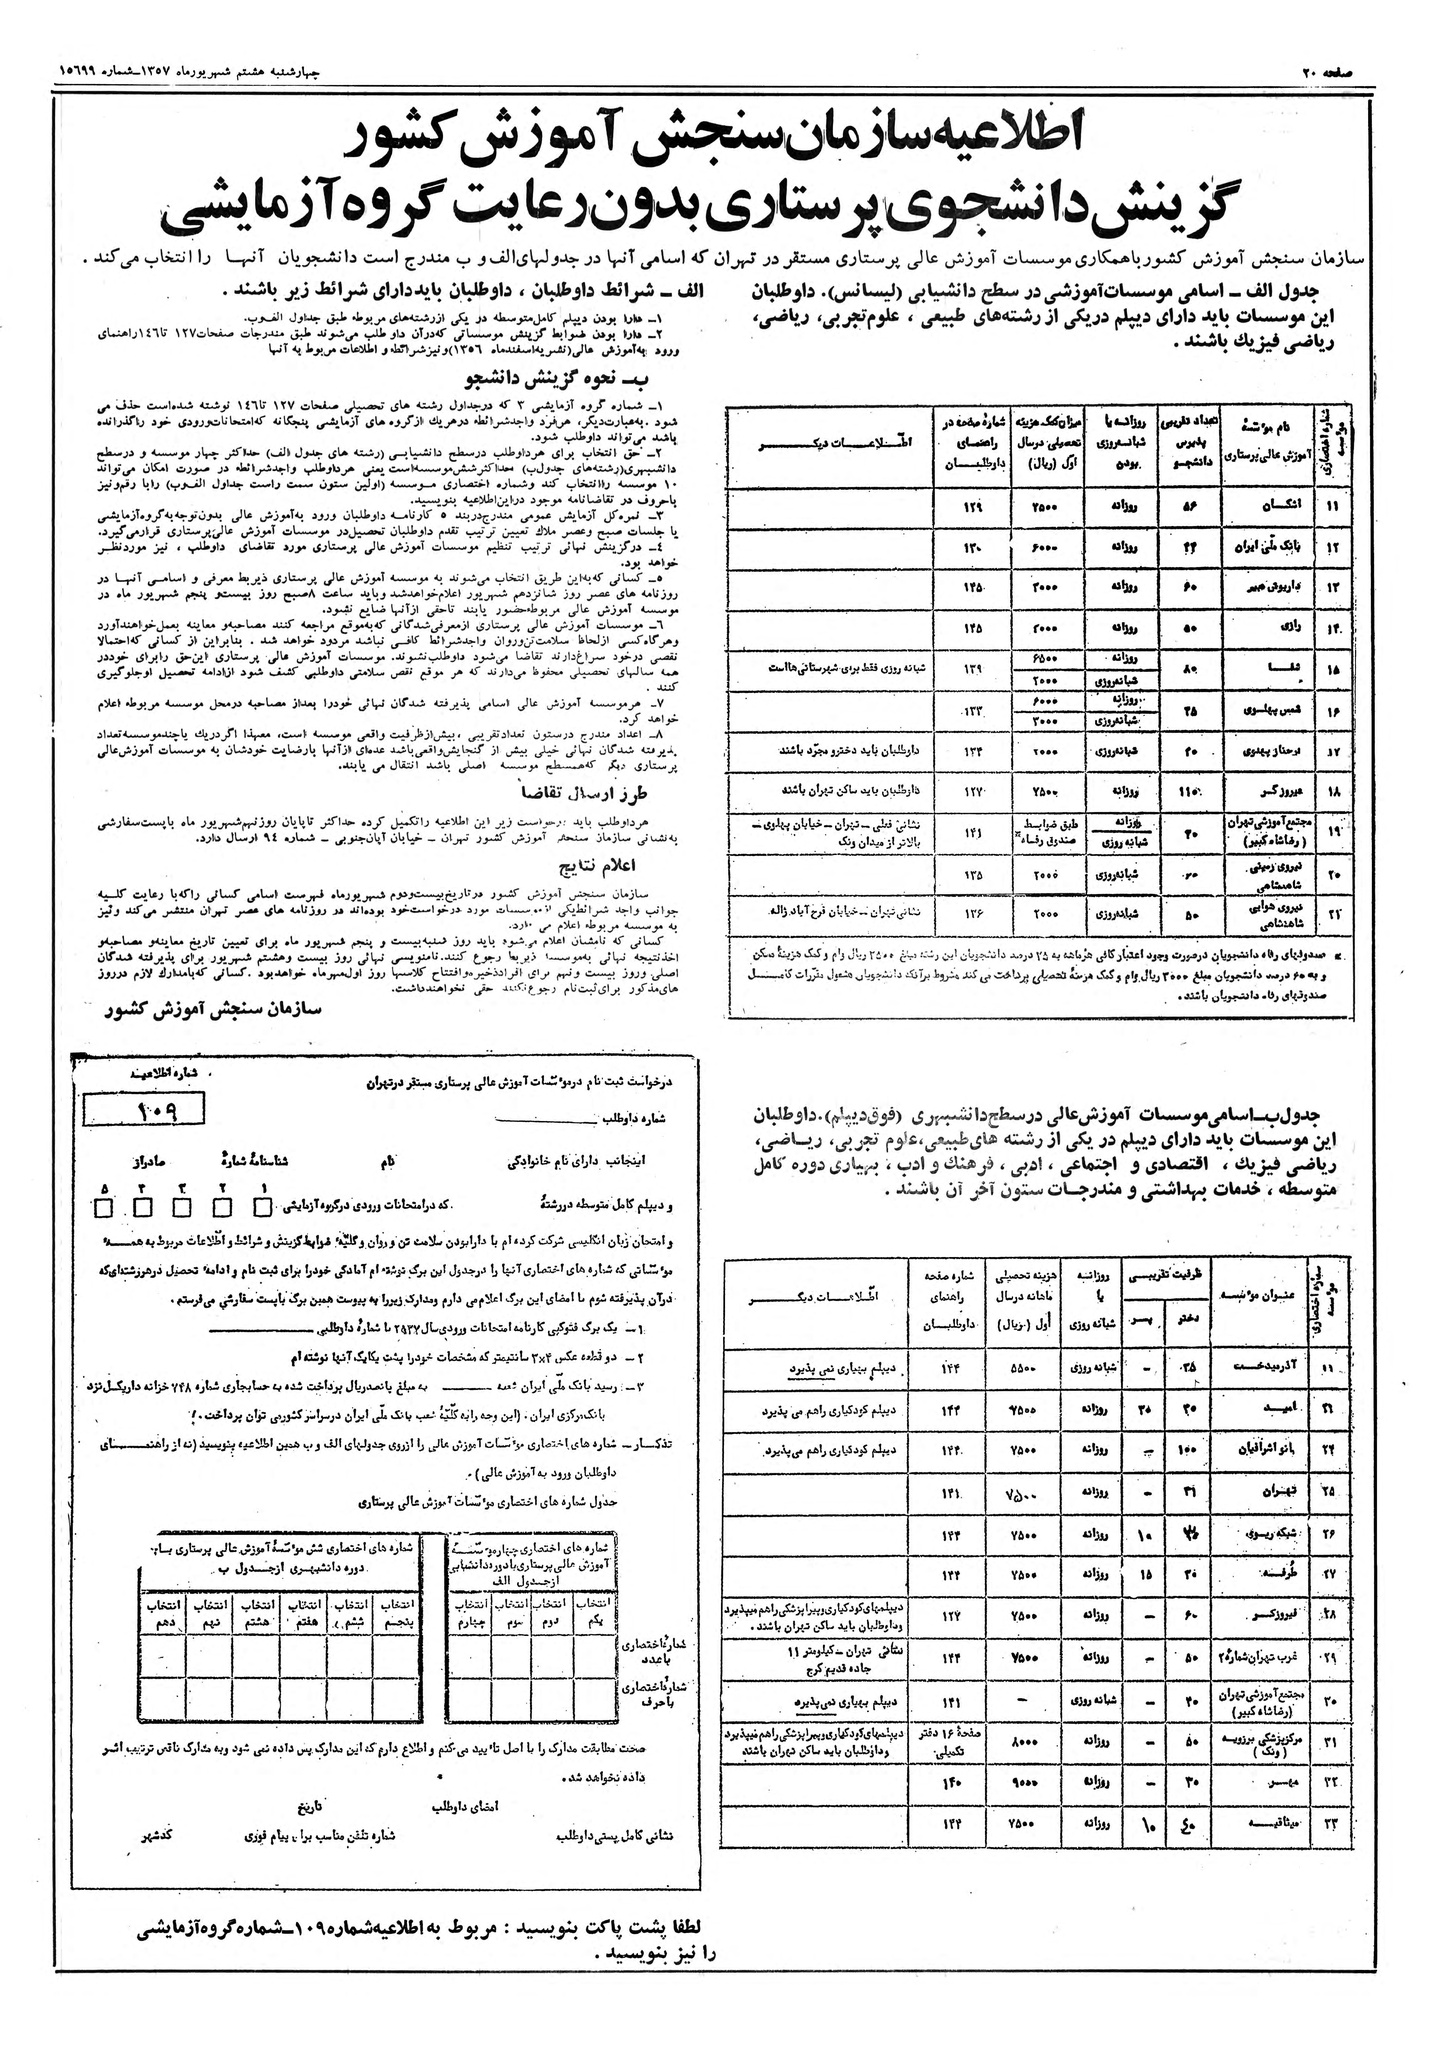 صفحه ۲۰
چهارشنبه هشتم شهریورماه ۱۳۵۷ــشماره ۱۵۶۹۹
اطلاعیه سازمان سنجش آموزش کشور
گزینش دانشجوی پرستاری بدون رعایت گروه آزمایشی
سازمان سنجش آموزش کشور باهمکاری موسسات آموزش عالی پرستاری مستقر در تهران که اسامی آنها در جدولهای الف و ب مندرج است دانشجویان آنهـا را انتخاب می‌کند .
جدول الف ــ اسامی موسسات آموزشی در سطح دانشیابی (لیسانس). داوطلبان
این موسسات باید دارای دیپلم در یکی از رشته‌های طبیعی ، علوم تجربی، ریاضی،
ریاضی فیزیك باشند .
شمارهٔ اختصاری موسسه
نام موسسهٔ آموزش عالی پرستاری
تعداد تقریبی پذیرش دانشجو
روزانه یا شبانه‌روزی بودن
میزان کمک هزینه تحصیلی در سال اول (ریال)
شمارهٔ صفحه در راهنمای داوطلبـان
اطـلاعـات دیگـر
۱۱ اشکان ۵۶ روزانه ۲۵۰۰ ۱۲۹
۱۲ بانک ملی ایران ۴۴ روزانه ۶۰۰۰ ۱۳۰
۱۳ ۶۰ روزانه ۲۰۰۰ ۱۴۵
۱۴ رازی ۵۰ روزانه ۲۰۰۰ ۱۴۵
۱۵ شفـا ۸۰ روزانه ۶۵۰۰ شبانه‌روزی ۲۰۰۰ ۱۳۹ شبانه روزی فقط برای شهرستانی‌ها است
۱۶ شمس پهلوی ۳۵ روزانه ۶۰۰۰ شبانه‌روزی ۳۰۰۰ ۱۳۳
۱۷ فرحناز پهلوی ۴۰ شبانه‌روزی ۲۰۰۰ ۱۳۴ داوطلبان باید دختر و مجرد باشند
۱۸ فیروزگر ۱۱۰ روزانه ۷۵۰۰ ۱۲۷ داوطلبان باید ساکن تهران باشند
۱۹ مجتمع آموزشی تهران (رضاشاه کبیر) ۴۰ روزانه شبانه روزی طبق ضوابط صندوق رفاه* ۱۴۱ نشانی قبلی – تهران – خیابان پهلوی – بالاتر از میدان ونک
۲۰ نیروی زمینی شاهنشاهی شبانه‌روزی ۲۰۰۰ ۱۳۵
۲۱ نیروی هوایی شاهنشاهی ۵۰ شبانه‌روزی ۲۰۰۰ ۱۳۶ نشانی تهران – خیابان فرح آباد ژاله.
* صندوقهای رفاه دانشجویان در صورت وجود اعتبار کافی هرماهه به ۲۵ درصد دانشجویان این رشته مبلغ ۲۵۰۰ ریال وام و کمک هزینهٔ مسکن
و به ۶۰ درصد دانشجویان مبلغ ۳۰۰۰ ریال وام و کمک هزینهٔ تحصیلی پرداخت می کند مشروط بر آنکه دانشجویان مشمول مقررات کامـل
صندوقهای رفاه دانشجویان باشند .
جدول ب ــ اسامی موسسات آموزش عالی در سطح دانشبهری (فوق دیپلم). داوطلبان
این موسسات باید دارای دیپلم در یکی از رشته های طبیعی، علوم تجربی، ریاضی،
ریاضی فیزیك ، اقتصادی و اجتماعی ، ادبی ، فرهنگ و ادب ، بهیاری دوره کامل
متوسطه ، خدمات بهداشتی و مندرجات ستون آخر آن باشند .
شمارهٔ اختصاری موسسه
عنوان موسسه
ظرفیت تقریبی
دختر پسر
روزانه یا شبانه روزی
هزینه تحصیلی ماهانه در سال اول (ریال)
شماره صفحه راهنمای داوطلبـان
اطـلاعـات دیگـر
آذرمیدخت ۳۵ – شبانه روزی ۵۵۰۰ ۱۴۴ دیپلم بهیاری نمی پذیرد
امیـد ۳۰ ۳۰ روزانه ۷۵۰۰ ۱۴۴ دیپلم کودکیاری راهم می پذیرد
۲۴ بانو اشرافیان ۱۰۰ – روزانه ۷۵۰۰ ۱۴۴ دیپلم کودکیاری راهم می‌پذیرد
۲۵ تهران ۳۱ – روزانه ۷۵۰۰ ۱۴۱
۲۶ شبکه ریوی ۱۰ روزانه ۷۵۰۰ ۱۴۴
۲۷ طرفـه ۳۰ ۱۵ روزانه ۷۵۰۰ ۱۴۴
۲۸ فیروزگـر ۶۰ – روزانه ۷۵۰۰ ۱۲۷ دیپلمهای کودکیاری و پیراپزشکی راهم میپذیرد و داوطلبان باید ساکن تهران باشند .
۲۹ غرب تهران شمارهٔ ۲ ۵۰ – روزانه ۷۵۰۰ ۱۴۴ نشانی تهران – کیلومتر ۱۱ جاده قدیم کرج
۳۰ مجتمع آموزشی تهران (رضاشاه کبیر) ۴۰ – شبانه روزی – ۱۴۱ دیپلم بهیاری نمی‌پذیرد
۳۱ مرکز پزشکی برزویـه (ونک) ۵۰ – روزانه ۸۰۰۰ صفحهٔ ۱۶ دفتر تکمیلی دیپلمهای کودکیاری و پیراپزشکی راهم میپذیرد و داوطلبان باید ساکن تهران باشند
۳۲ مهـر ۳۰ – روزانه ۹۰۰۰ ۱۴۰
۳۳ میثاقیـه ٤۰ ۱۰ روزانه ۷۵۰۰ ۱۴۴
الف ــ شرائط داوطلبان ، داوطلبان باید دارای شرائط زیر باشند .
۱ــ دارا بودن دیپلم کامل متوسطه در یکی از رشته‌های مربوطه طبق جداول الف و ب.
۲ــ دارا بودن ضوابط گزینش موسساتی که در آن داوطلب می‌شوند طبق مندرجات صفحات ۱۲۷ تا ۱٤۶ راهنمای
ورود به آموزش عالی (نشریه اسفندماه ۱۳۵۶) و نیز شرائط و اطلاعات مربوط به آنها
ب ــ نحوه گزینش دانشجو
۱ــ شماره گروه آزمایشی ۳ که در جداول رشته های تحصیلی صفحات ۱۲۷ تا ۱٤۶ نوشته شده است حذف می
شود . به عبارت دیگر، هر فرد واجد شرائط در هریك از گروه های آزمایشی پنجگانه که امتحانات ورودی خود را گذرانده
باشد می‌تواند داوطلب شود.
۲ــ حق انتخاب برای هر داوطلب در سطح دانشیابی (رشته های جدول الف) حداکثر چهار موسسه و در سطح
دانشبهری (رشته‌های جدول ب) حداکثر شش موسسه است یعنی هر داوطلب واجد شرائط در صورت امکان می‌تواند
۱۰ موسسه را انتخاب کند و شماره اختصاری موسسه (اولین ستون سمت راست جداول الف و ب) را با رقم و نیز
با حروف در تقاضانامه موجود در این اطلاعیه بنویسید.
۳ــ نمره کل آزمایش عمومی مندرج در بند ۵ کارنامه داوطلبان ورود به آموزش عالی بدون توجه به گروه آزمایشی
یا جلسات صبح و عصر ملاك تعیین ترتیب تقدم داوطلبان تحصیل در موسسات آموزش عالی پرستاری قرار می‌گیرد.
۴ــ در گزینش نهائی ترتیب تنظیم موسسات آموزش عالی پرستاری مورد تقاضای داوطلب ، نیز موردنظر
خواهد بود.
۵ــ کسانی که به این طریق انتخاب می‌شوند به موسسه آموزش عالی پرستاری ذیربط معرفی و اسامـی آنهـا در
روزنامه های عصر روز شانزدهم شهریور اعلام خواهد شد و باید ساعت ۸ صبح روز بیست و پنجم شهریور ماه در
موسسه آموزش عالی مربوطه حضور یابند تا حقی از آنها ضایع نشود.
۶ــ موسسات آموزش عالی پرستاری از معرفی شدگانی که به موقع مراجعه کنند مصاحبه و معاینه بعمل خواهند آورد
و هرگاه کسی از لحاظ سلامت تن و روان واجد شرائط کافـی نباشد مردود خواهد شد . بنابراین از کسانی که احتمالا
نقصی در خود سراغ دارند تقاضا می‌شود داوطلب نشوند. موسسات آموزش عالی پرستاری این حق را برای خود در
همه سالهای تحصیلی محفوظ می‌دارند که هر موقع نقص سلامتی داوطلبی کشف شود از ادامه تحصیل او جلوگیری
کنند .
۷ــ هر موسسه آموزش عالی اسامی پذیرفته شدگان نهائی خود را بعد از مصاحبه در محل موسسه مربوطه اعلام
خواهد کرد.
۸ــ اعداد مندرج در ستون تعداد تقریبی ، بیش از ظرفیت واقعی موسسه است، معهذا اگر در یك یا چند موسسه تعداد
پذیرفته شدگان نهائی خیلی بیش از گنجایش واقعی باشد عده‌ای از آنها با رضایت خودشان به موسسات آموزش عالی
پرستاری دیگر که همسطح موسسه اصلی باشد انتقال می یابند.
طرز ارسال تقاضا
هر داوطلب باید درخواست زیر این اطلاعیه را تکمیل کرده حداکثر تا پایان روز نهم شهریور ماه با پست سفارشی
به نشانی سازمان سنجش آموزش کشور تهران – خیابان آبان جنوبی – شماره ۹٤ ارسال دارد.
اعلام نتایج
سازمان سنجش آموزش کشور در تاریخ بیست و دوم شهریورماه فهرست اسامی کسانی را که با رعایت کلیـه
جوانب واجد شرائط یکی از موسسات مورد درخواست خود بوده‌اند در روزنامه های عصر تهران منتشر می‌کند و نیز
به موسسه مربوطه اعلام می دارد.
کسانی که نامشان اعلام می‌شود باید روز شنبه بیست و پنجم شهریور ماه برای تعیین تاریخ معاینه و مصاحبه و
اخذ نتیجه نهائی به موسسه ذیربط رجوع کنند. نامنویسی نهائی روز بیست و هشتم شهریور برای پذیرفته شدگان
اصلی و روز بیست و نهم برای افراد ذخیره و افتتاح کلاسها روز اول مهرماه خواهد بود. کسانی که با مدارك لازم در روز
های مذکور برای ثبت نام رجوع نکنند حقی نخواهند داشت.
سازمان سنجش آموزش کشور
شماره اطلاعیـه
۱۰۹
درخواست ثبت نام در موسسات آموزش عالی پرستاری مستقر در تهران
شماره داوطلب
اینجانب دارای نام خانوادگی نام شناسنامهٔ شمارهٔ صادر از
و دیپلم کامل متوسطه در رشتهٔ که در امتحانات ورودی در گروه آزمایشی ۱ ۲ ۳ ۴ ۵
و امتحان زبان انگلیسی شرکت کرده ام با دارا بودن سلامت تن و روان و کلیهٔ ضوابط گزینش و شرائط و اطلاعات مربوط به همـه
موسساتی که شماره های اختصاری آنها را در جدول این برگ نوشته ام آمادگی خود را برای ثبت نام و ادامه تحصیل در هر رشته‌ای که
در آن پذیرفته شوم با امضای این برگ اعلام می دارم و مدارک زیر را به پیوست همین برگ با پست سفارشی می‌فرستم .
۱ – یک برگ فتوکپی کارنامه امتحانات ورودی سال ۲۵۳۷ با شمارهٔ داوطلبی
۲ – دو قطعه عکس ۴×۳ سانتیمتر که مشخصات خود را پشت یکایک آنها نوشته ام
۳ – رسید بانک ملی ایران شعبه به مبلغ پانصد ریال پرداخت شده به حساب جاری شماره ۷۴۸ خزانه داری کل نزد
بانک مرکزی ایران . (این وجه را به کلیهٔ شعب بانک ملی ایران در سراسر کشور می توان پرداخت .)
تذکـار – شماره های اختصاری موسسات آموزش عالی را از روی جدولهای الف و ب همین اطلاعیه بنویسید (نه از راهنمـای
داوطلبان ورود به آموزش عالی).
جدول شماره های اختصاری موسسات آموزش عالی پرستاری
شماره های اختصاری چهار موسسـه آموزش عالی پرستاری با دوره دانشیابی از جدول الف
انتخاب یکم انتخاب دوم انتخاب سوم انتخاب چهارم
شماره های اختصاری شش موسسهٔ آموزش عالی پرستاری بـا دوره دانشبهری از جـدول ب
انتخاب پنجـم انتخاب ششم انتخاب هفتم انتخاب هشتم انتخاب نهم انتخاب دهم
شمارهٔ اختصاری با عدد
شمارهٔ اختصاری با حرف
صحت مطابقت مدارک را با اصل تایید می‌کنم و اطلاع دارم که این مدارک پس داده نمی شود و به مدارک ناقص ترتیب اثـر
داده نخواهد شد .
امضای داوطلب تاریخ
نشانی کامل پستی داوطلب شماره تلفن مناسب برای پیام فوری کدشهر
لطفا پشت پاکت بنویسید : مربوط به اطلاعیه شماره ۱۰۹ــشماره گروه آزمایشی
را نیز بنویسید .